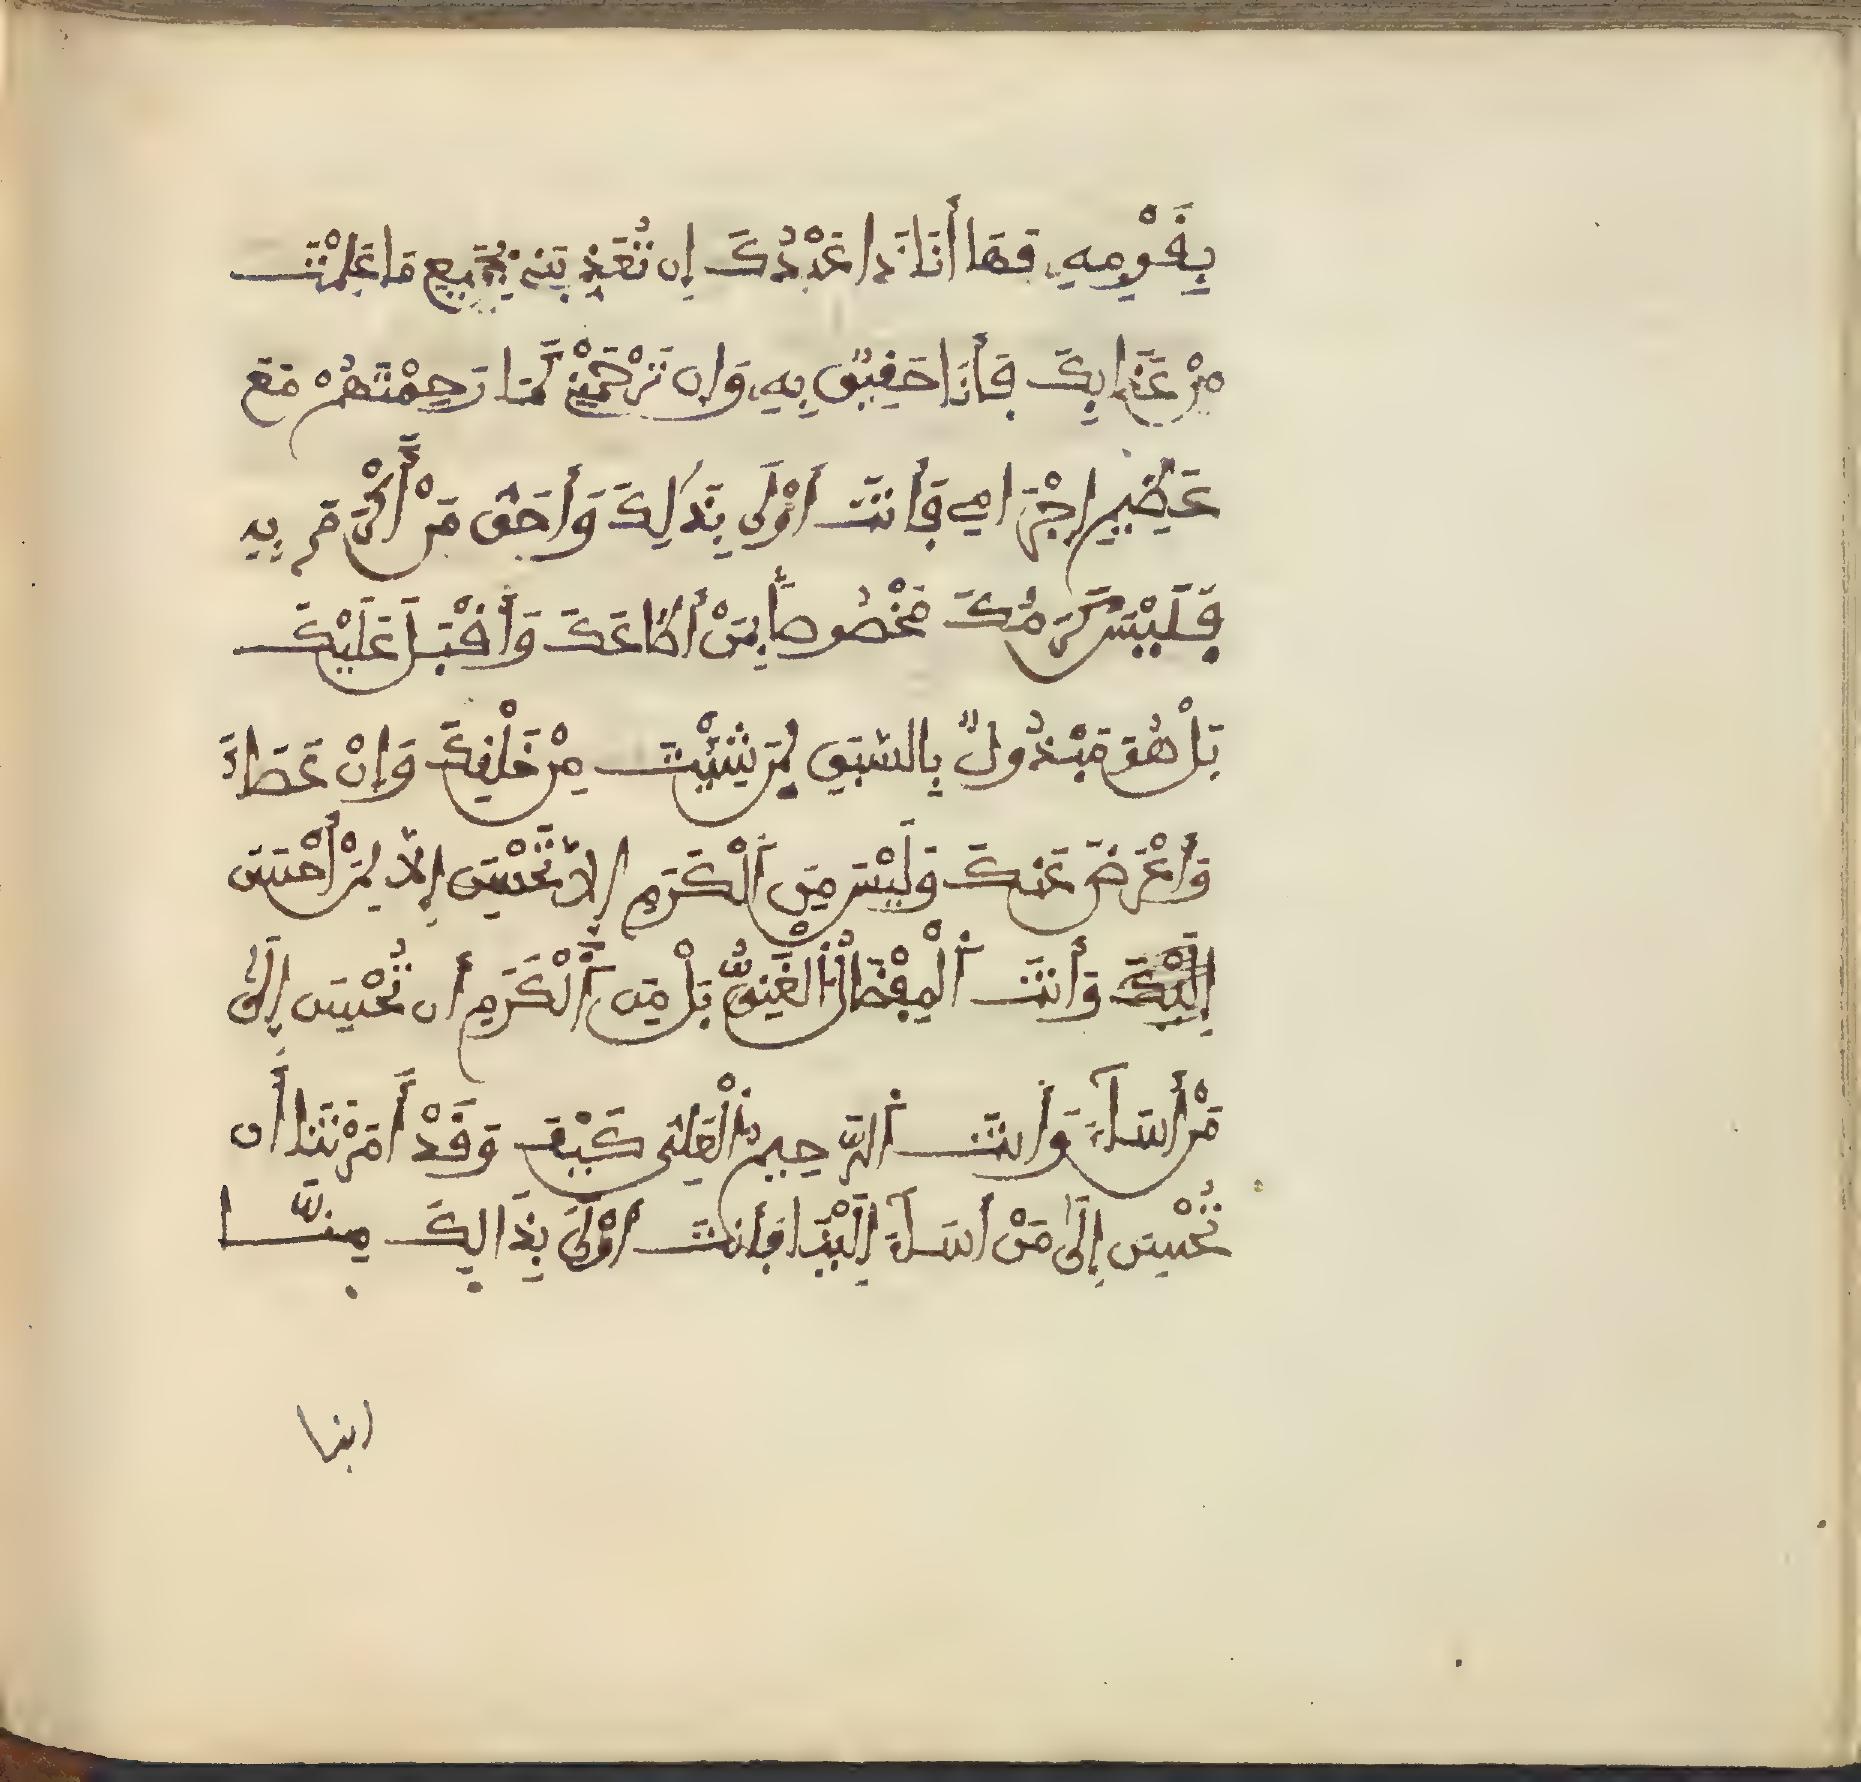 بِقَوْمِهِ فَهَا أَنَا ذَا عَبْدُكَ إِن تُعَذِّبْنِي بِجَمِيعِ مَا عَلِمْتَ
مِنْ عَذَابِكَ فَأَنَا حَقِيقٌ بِهِ وَإِن تَرْحَمْنِي كَمَا رَحِمْتَهُمْ مَعَ
عَظِيمِ إِجْرَامِي فَأَنتَ أَوْلَى بِذَلِكَ وَأَحَقُّ مَنْ أَكْرَمَ بِهِ
فَلَيْسَ كَرَمُكَ مَخْصُوصاً بِمَنْ أَطَاعَكَ وَأَقْبَلَ عَلَيْكَ
بَلْ هُوَ مَبْذُولٌ بِالسَّبَقِ لِمَن شِئْتَ مِنْ خَلْقِكَ وَإِنْ عَصَاكَ
وَأَعْرَضَ عَنكَ وَلَيْسَ مِنَ الْكَرَمِ إِلاَّ تُحْسِنَ إِلاَّ لِمَنْ أَحْسَنَ
إِلَيْكَ وَأَنتَ الْمِفْضَالُ الْغَنِيُّ بَلْ مِنَ الْكَرَمِ أَن تُحْسِنَ إِلَى
مَنْ أَسَآءَ وَأَنتَ الرَّحِيمُ الْعَلِيُّ كَيْفَ وَقَدْ أَمَرْتَنَا أَن
تُحْسِنَ إِلَى مَنْ أَسَآءَ إِلَيْنَا فَأَنتَ أَوْلَى بِذَالِكَ مِنَّا